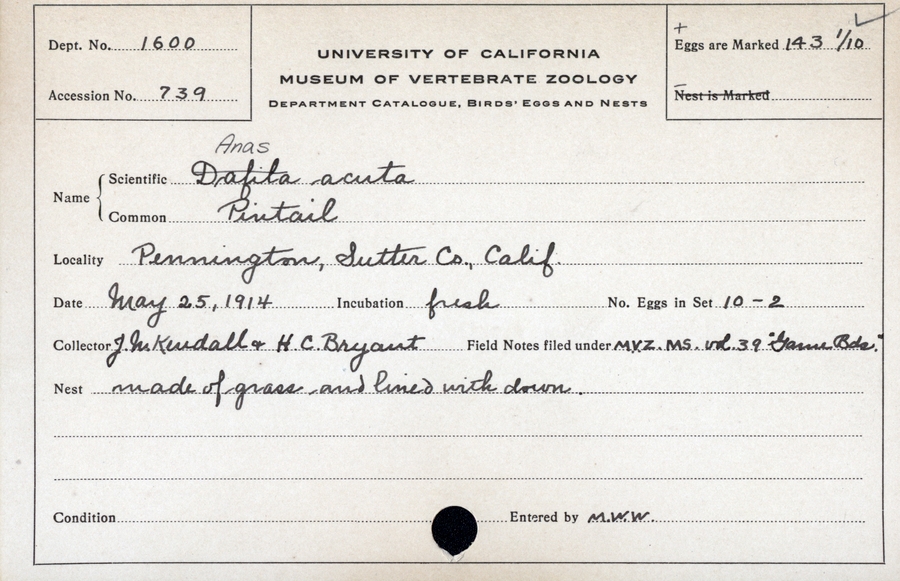 Dept. No. 1600
Accession No. 739
UNIVERSITY OF CALIFORNIA
MUSEUM OF VERTEBRATE ZOOLOGY
DEPARTMENT CATALOGUE, BIRDS' EGGS AND NESTS
+
Eggs are Marked 143 1/10
Nest is Marked
Anas
Name { Scientific Dafila acuta
Common Pintail
Locality Pennington, Sutter Co., Calif.
Date May 25, 1914 Incubation fresh No. Eggs in Set 10-2
Collector J. M. Kendall & H. C. Bryant Field Notes filed under MVZ. MS. vol. 39 "Game Bds."
Nest made of grass and lined with down.
Condition Entered by M.W.W.